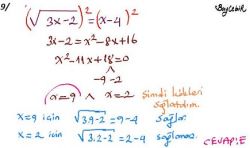 9/
(√3x-2)² = (x-4)²
3x-2 = x²-8x+16
x²-11x+18=0
-9 -2
x=9 ∧ x=2 Şimdi kökleri
x=9 için √3.9-2 = 9-4 Sağlar.
x=2 için √3.2-2 = 2-4 Sağlamaz.
CEVAP: E